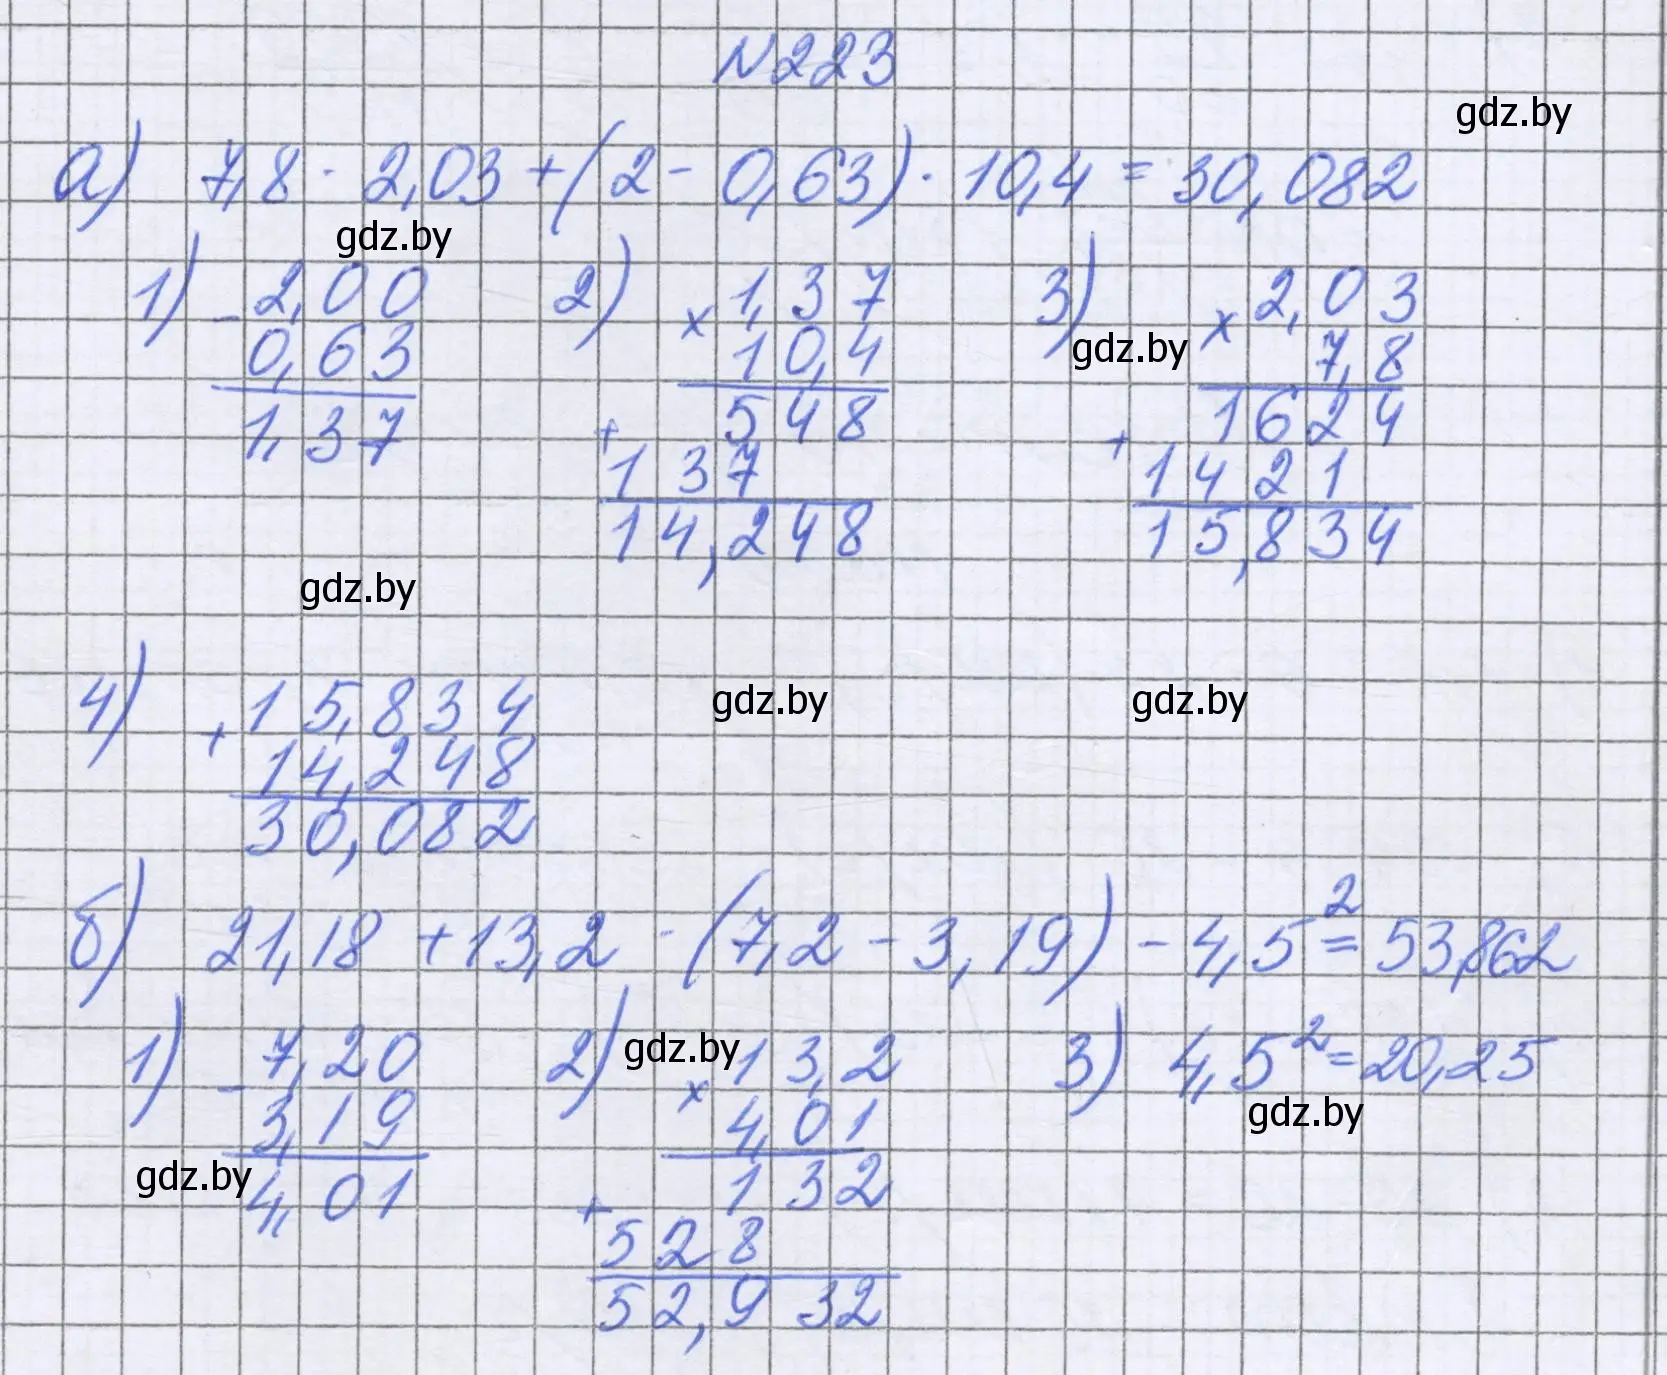 N223
gdz.by
а) 7,8 · 2,03 + (2 - 0,63) · 10,4 = 30,082
gdz.by
1) - 2,00
0,63
1,37
2) x 1,37
10,4
+ 548
137
14,248
3) x 2,03
gdz.by
7,8
+ 1624
1421
15,834
gdz.by
4) + 15,834
14,248
30,082
gdz.by
gdz.by
б) 21,18 + 13,2 · (7,2 - 3,19) - 4,5² = 53,862
1) - 7,20
3,19
4,01
gdz.by
2) x 13,2
gdz.by
4,01
+ 132
528
52,932
3) 4,5² = 20,25
gdz.by